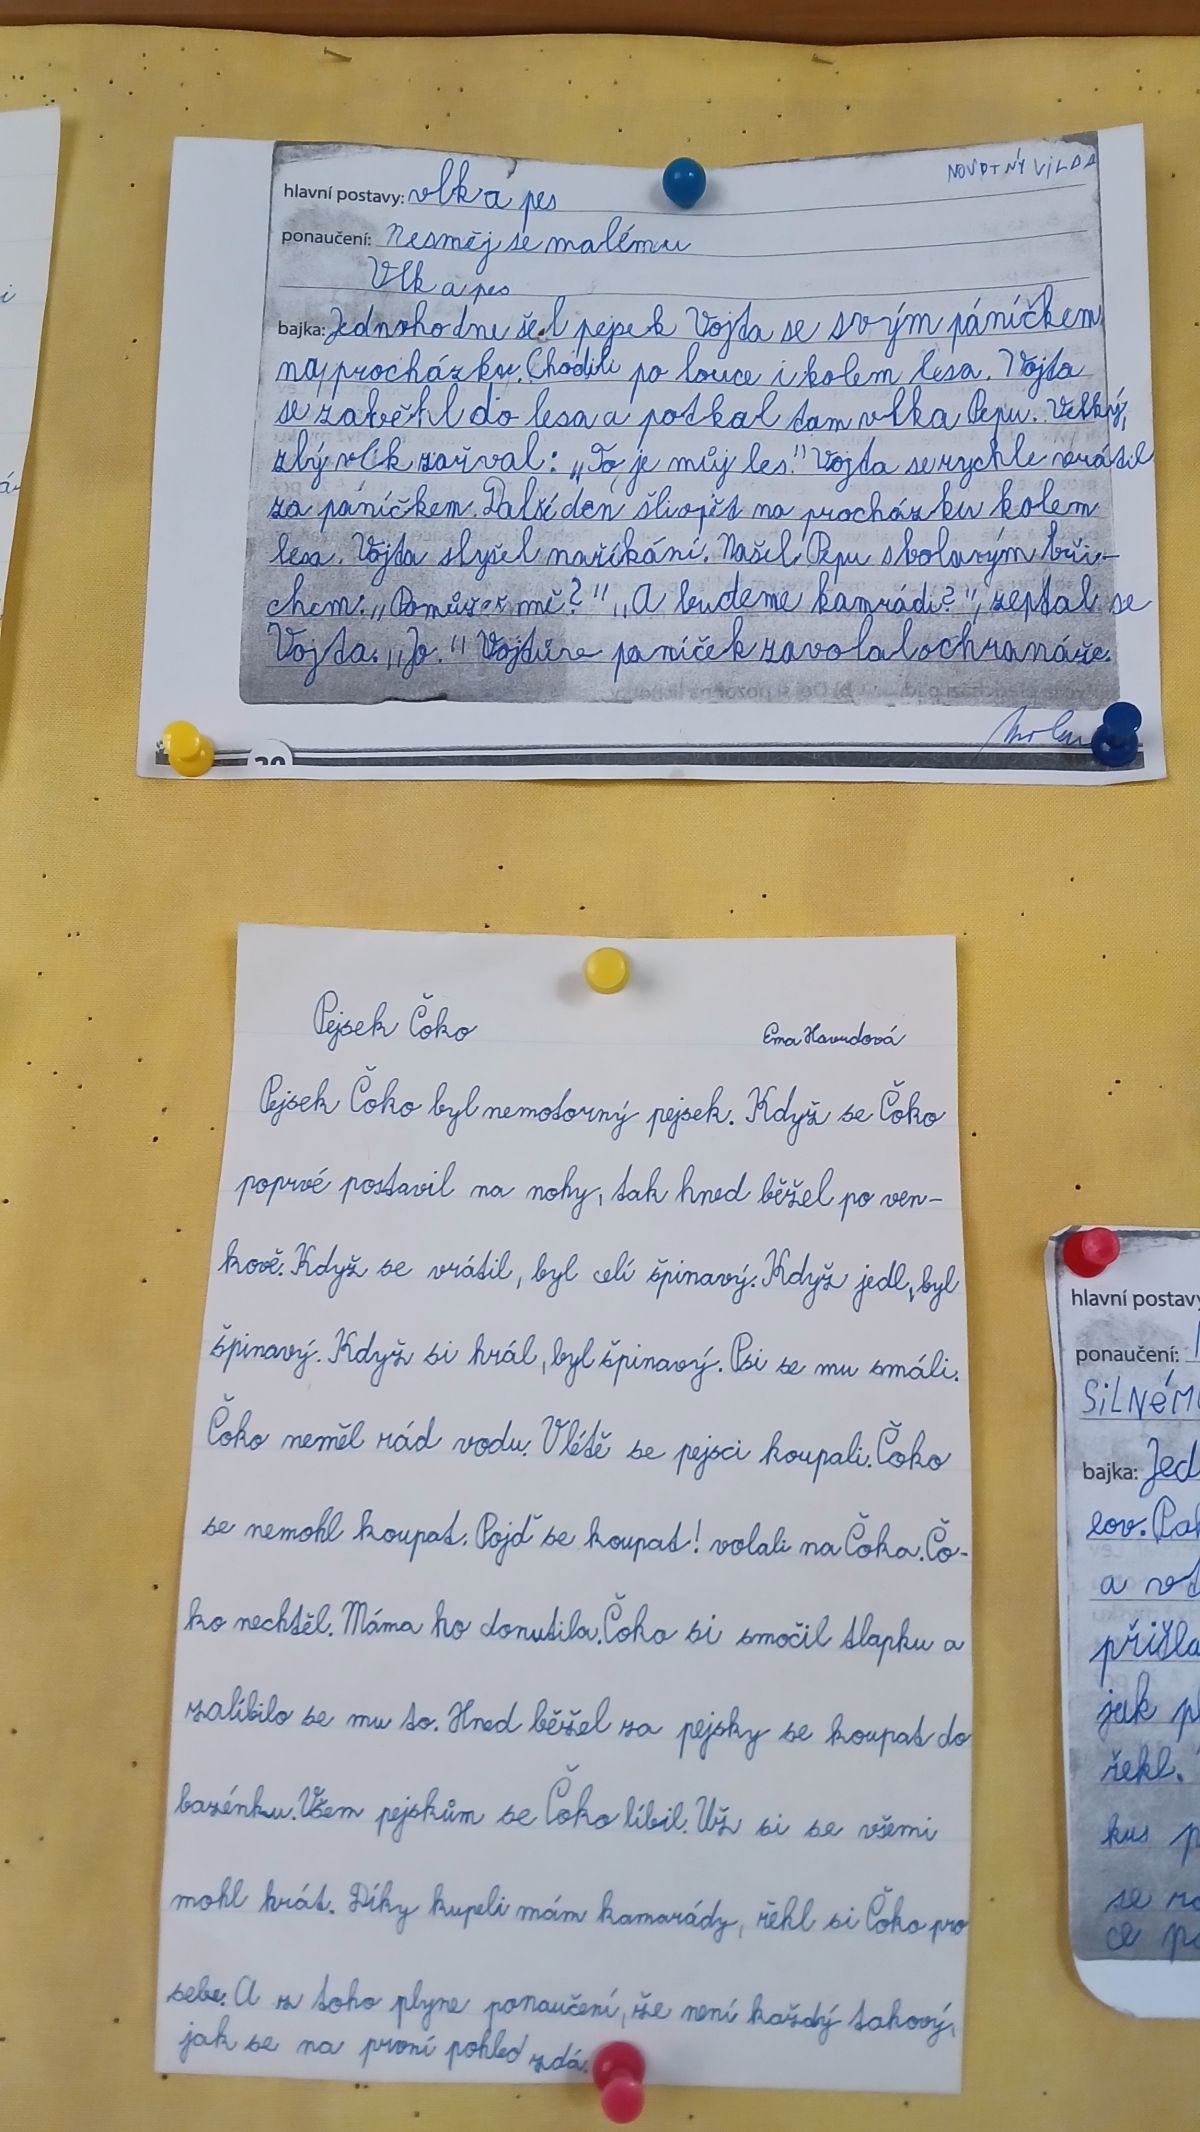 NOVOTNÝ VILDA
hlavní postavy: vlk a pes
ponaučení: Nesměj se malému
Vlk a pes
bajka: Jednoho dne šel pejsek Vojta se svým páníčkem
na procházku. Chodili po louce i kolem lesa. Vojta
se zaběhl do lesa a potkal tam vlka Pepu. Velký,
zlý vlk zařval: „To je můj les!" Vojta se rychle vrátil
za páníčkem. Další den šli opět na procházku kolem
lesa. Vojta slyšel naříkání. Našel Pepu s bolavým bři-
chem: „Pomůžeš mě?" „A budeme kamrádi?", zeptal se
Vojta. „Jo." Vojtův páníček zavolal ochranáře.
20
Pejsek Čoko
Ema Havrdová
Pejsek Čoko byl nemotorný pejsek. Když se Čoko
poprvé postavil na nohy, tak hned běžel po ven-
kově. Když se vrátil, byl celí špinavý. Když jedl, byl
špinavý. Když si hrál, byl špinavý. Psi se mu smáli.
Čoko neměl rád vodu. V létě se pejsci koupali. Čoko
se nemohl koupat. Pojď se koupat! volali na Čoka. Čo-
ko nechtěl. Máma ho donutila. Čoko si smočil tlapku a
zalíbilo se mu to. Hned běžel za pejsky se koupat do
bazénku. Všem pejskům se Čoko líbil. Už si se všemi
mohl hrát. Díky kupeli mám kamarády, řekl si Čoko pro
sebe. A z toho plyne ponaučení, že není každý takový,
jak se na první pohled zdá.
hlavní postavy
ponaučení:
SILNÉMU
bajka: Jed
lov. Pak
a
přišla
jak
řekl.
kus p
se